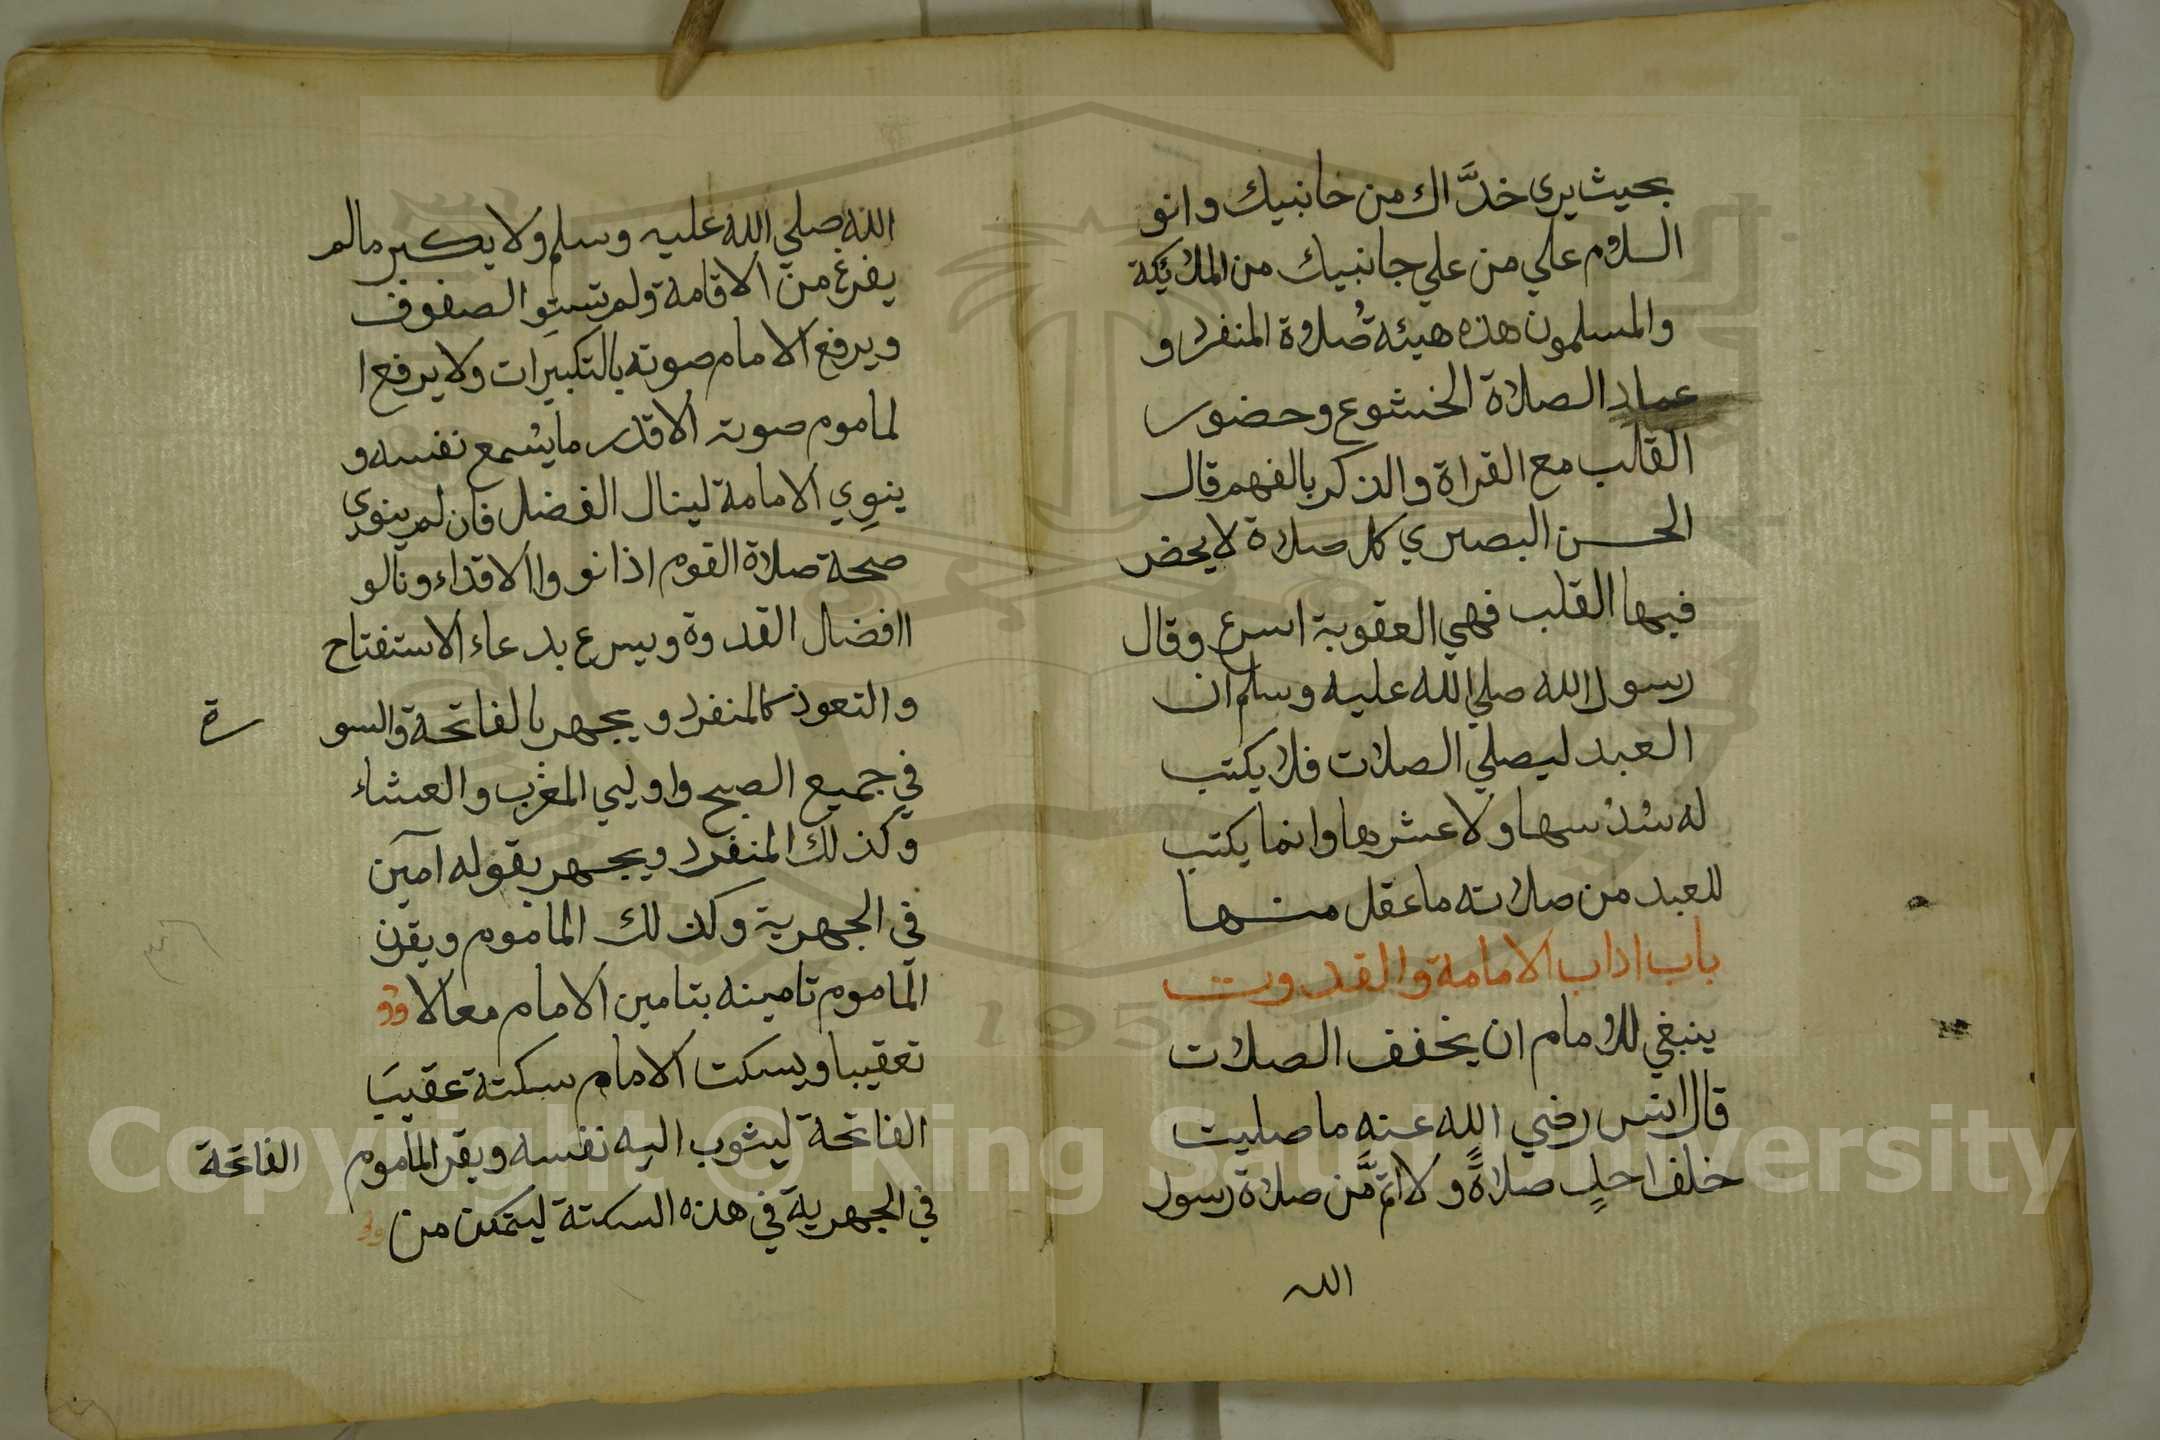 بحيث يرى خدَّاك من جانبيك وانو
السلام علي من علي جانبيك من الملائكة
والمسلمون هذه هيئة صلاة المنفرد و
عماد الصلاة الخشوع وحضور
القلب مع القراة والذكر بالفهم قال
الحسن البصري كل صلاة لا يحضر
فيها القلب فهي العقوبة اسرع وقال
رسول الله صلي الله عليه وسلم ان
العبد ليصلي الصلات فلا يكتب
له سُدُسها ولا عشرها وانما يكتب
للعبد من صلاته ما عقل منها
باب اداب الامامة والقدوت
ينبغي للامام ان يخفف الصلات
قال انس رضي الله عنه ما صليت
خلف احدٍ صلاةً ولا اتمَّ من صلاة رسول
الله
الله صلي الله عليه وسلم ولا يكبر مالم
يفرغ من الاقامة ولم تستو الصفوف
ويرفع الامام صوته بالتكبيرات ولا يرفع ا
لماموم صوته الا قدر ما يسمع نفسه و
ينوي الامامة لينال الفضل فان لم ينوي
صحة صلاة القوم اذا نووا الاقداء ونالو
اافضال القدوة ويسرع بدعاء الاستفتاح
والتعوذ كالمنفرد ويجهر بالفاتحة والسو
رة
في جميع الصبح واوليي المغرب والعشاء
وكذلك المنفرد ويجهر بقوله امين
في الجهرية وكذلك الماموم ويقرن
الماموم تامينه بتامين الامام معا لا
تعقيبا ويسكت الامام سكتة عقيب
الفاتحة ليثوب اليه نفسه ويقر الماموم الفاتحة
في الجهرية في هذه السكتة ليتمكن من
1957
Copyright © King Saud University